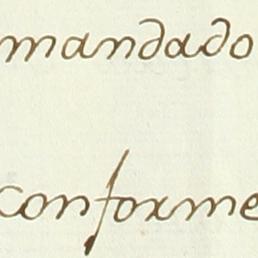 mandado
conforme